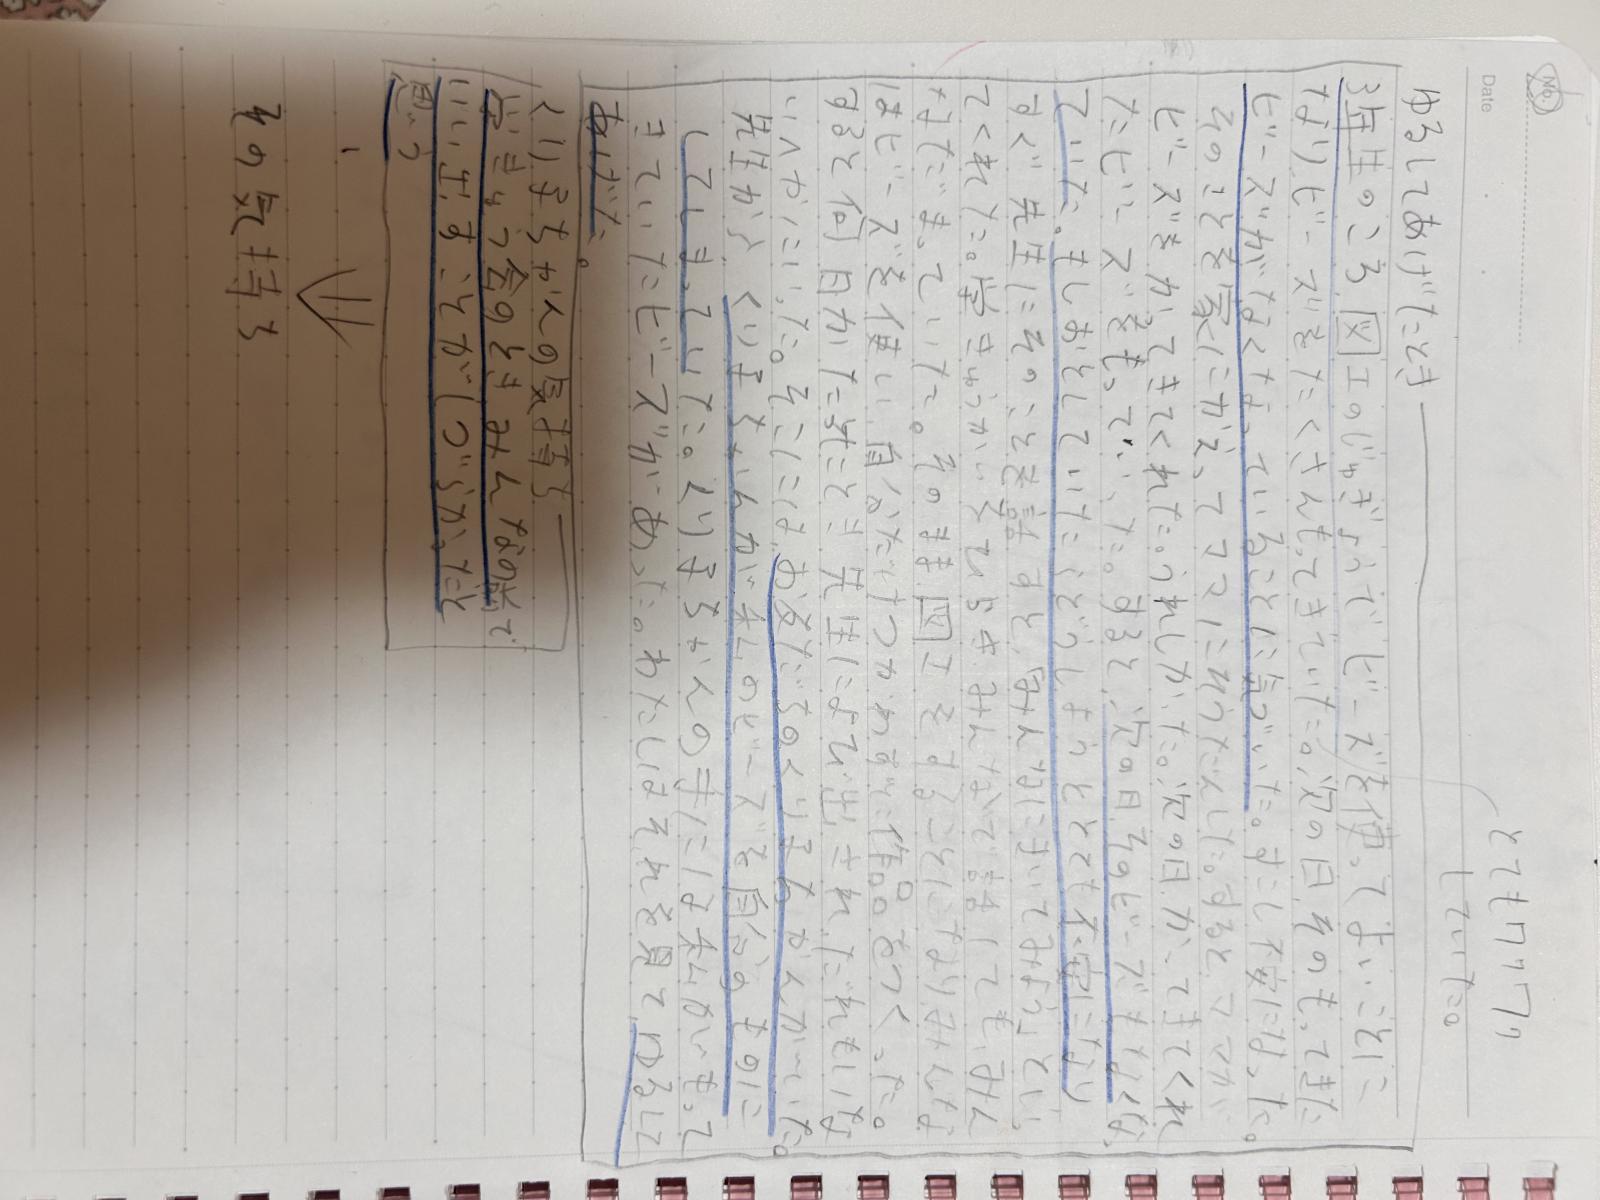 No.
Date
とてもワクワク
していた。
ゆるしてあげたとき
3年生のころ、図工のじゅぎょうでビーズを使ってよいことに
なり、ビーズをたくさんもってきていた。次の日、そのもってきた
ビーズがなくなっていることに気づいた。すこし不安になった。
そのことを家にかえってママにれんらくした。するとママが
ビーズをかってきてくれた。うれしかった。次の日、かってきてくれ
たビーズをもっていった。すると、次の日そのビーズがなくなっ
ていた。もしおとしていたらどうしようととても不安になり
すぐ先生にそのことを話すと、「みんなにきいてみよう」といっ
てくれた。学きゅうかいをひらきみんなで話してもみん
なだまっていた。そのまま図工をすることになりみんな
はビーズを使い、自分だけつかわずに作品をつくった。
すると何日かたったとき先生によび出されだれもいな
いへやにいった。そこには、お友だちのくりまちゃんがいた。
先生が、くりまちゃんが私のビーズを自分のものに
してしまっていた。くりまちゃんの手には私がもって
きていたビーズがあった。わたしはそれを見て、ゆるして
あげた。
くりまちゃんの気持ち
学きゅう会のときみんなの前で
いいだすことがしづらかったと
思う
その気持ち